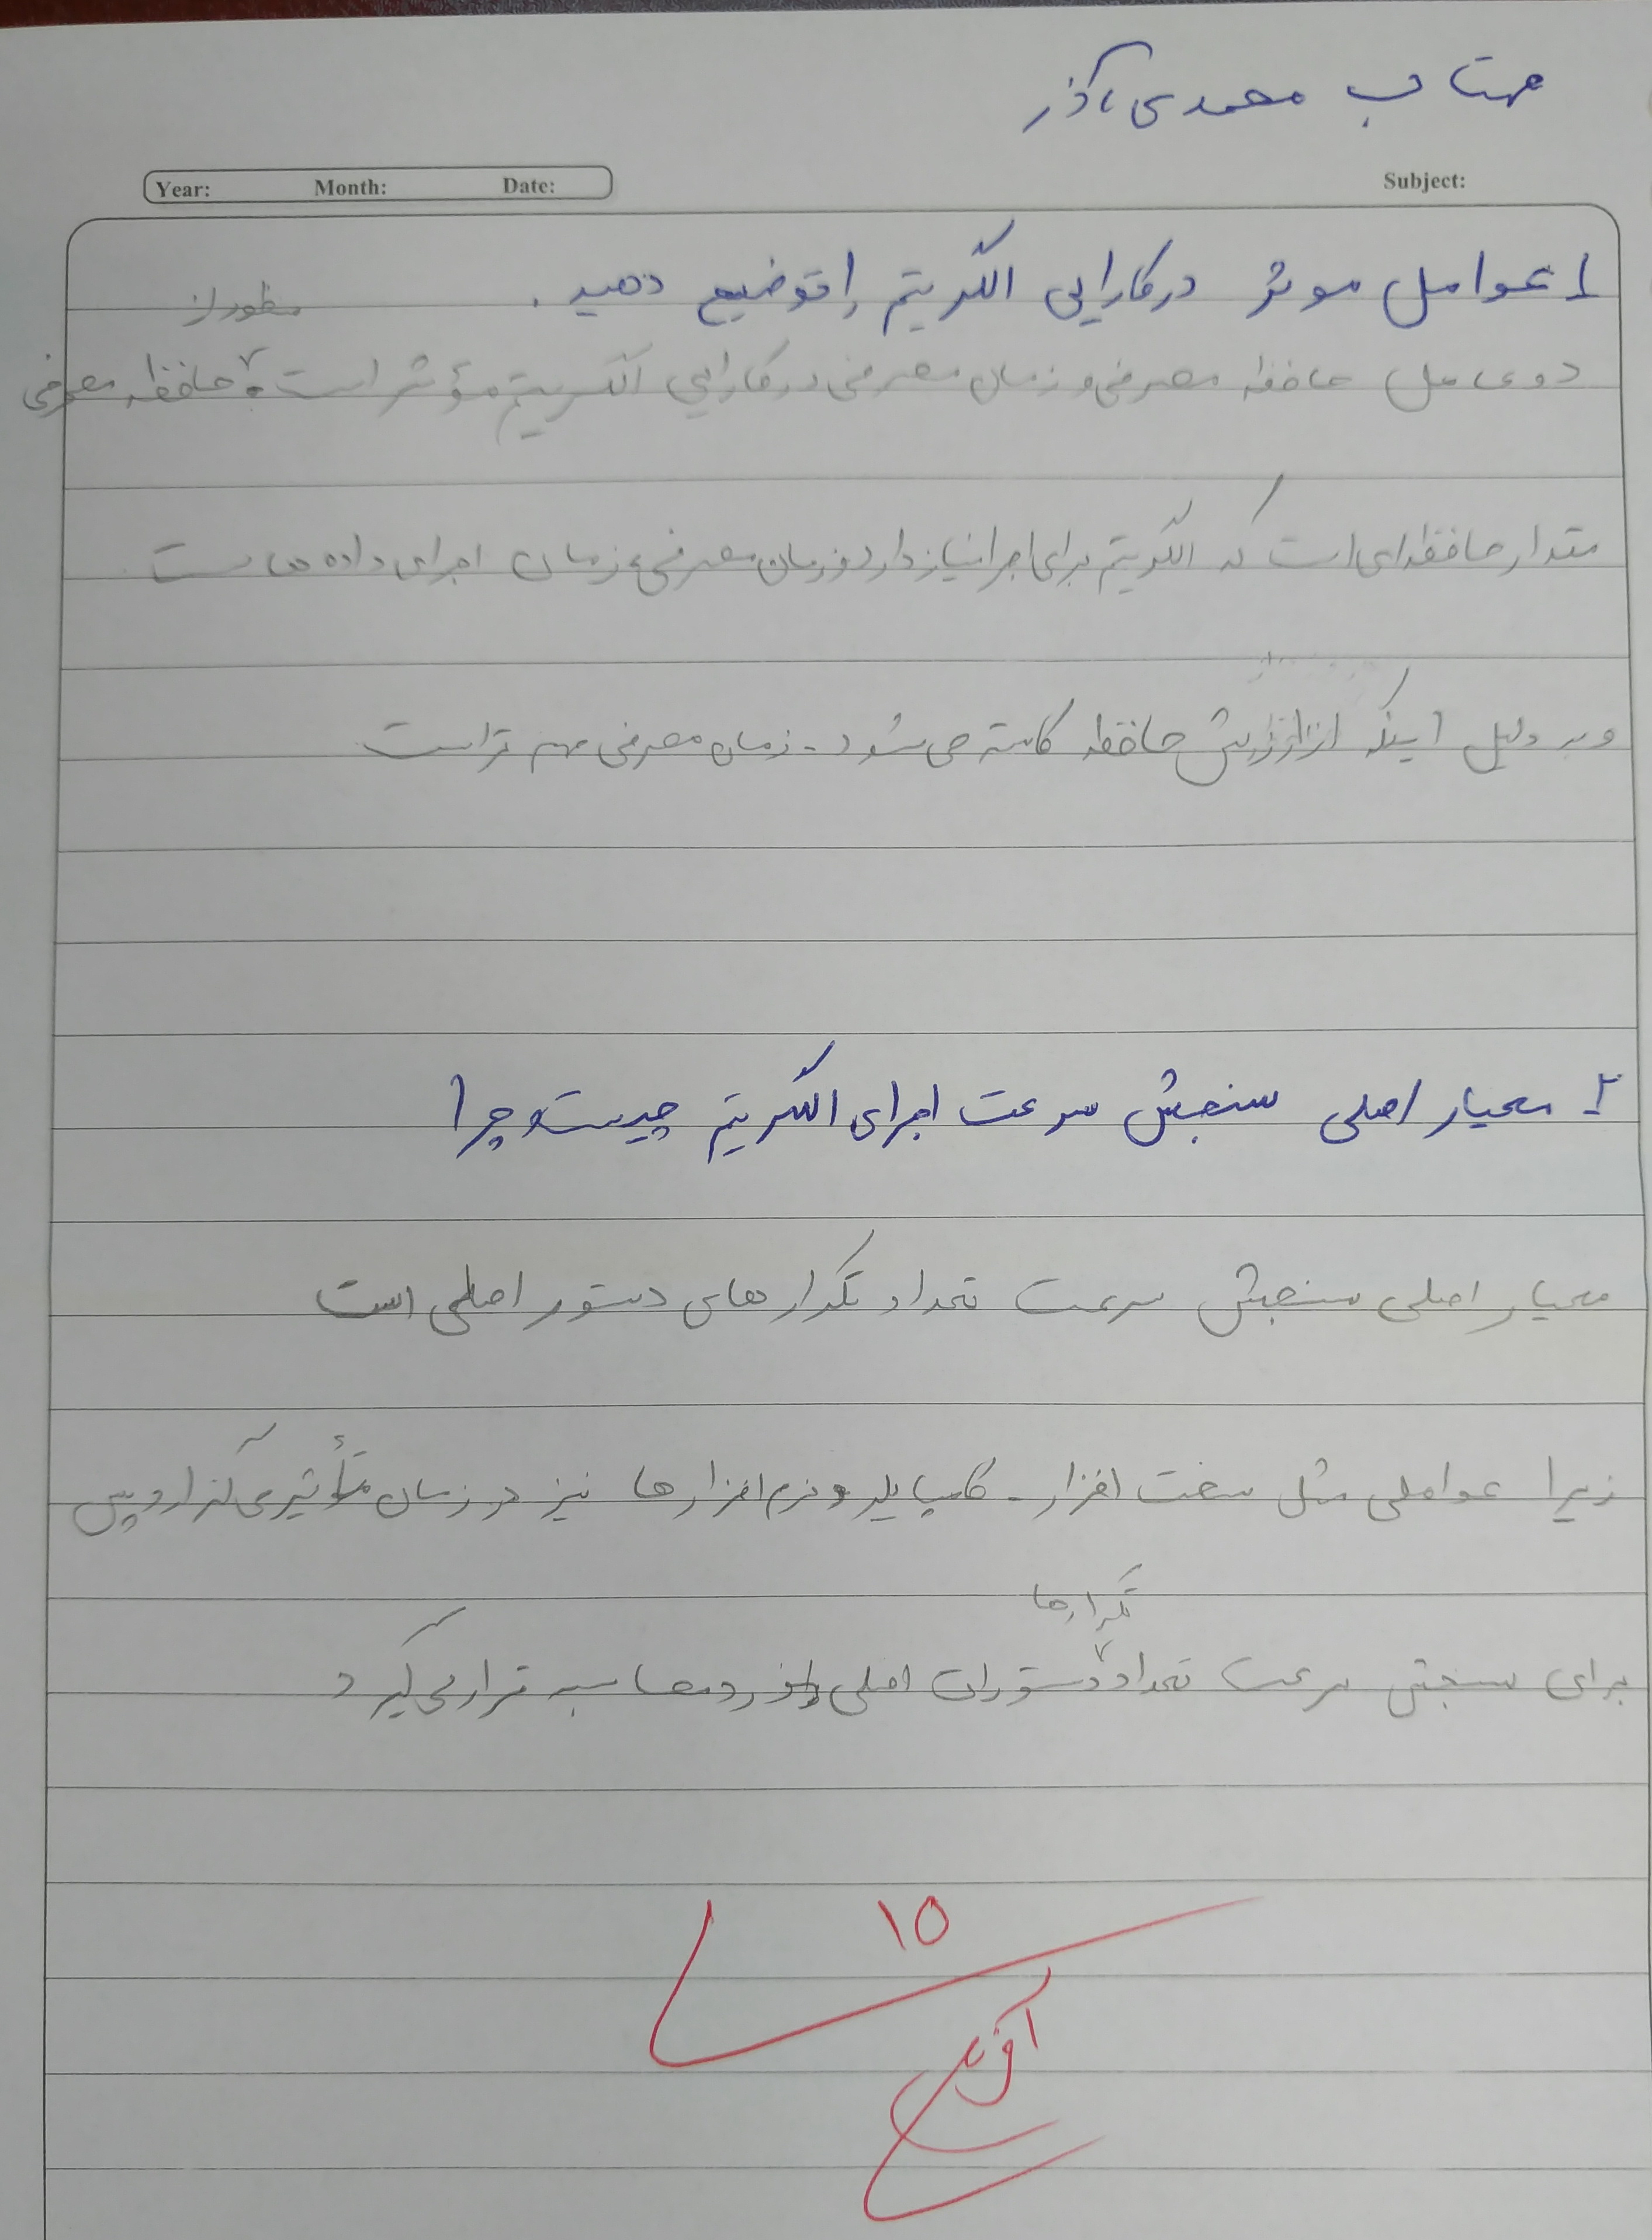 مهتاب محمدی آذر
Year: Month: Date: Subject:
1 عوامل موثر در کارایی الگریتم را توضیح دهید.
منظور از
دو عامل حافظه مصرفی و زمان مصرفی در کارایی الگریتم مؤثر است. حافظه مصرفی
مقدار حافظه‌ای است که الگریتم برای اجرا نیاز دارد و زمان مصرفی، زمان اجرای داده هاست
و به دلیل اینکه از ارزش حافظه کاسته می‌شود - زمان مصرفی مهم تر است
2 معیار اصلی سنجش سرعت اجرای الگریتم چیست و چرا
معیار اصلی سنجش سرعت تعداد تکرار های دستور اصلی است
زیرا عواملی مثل سخت افزار - کامپایلر و نرم افزار ها نیز در زمان تأثیر می گذارد پس
تکرارها
برای سنجش سرعت تعداد دستورات اصلی مورد محاسبه قرار می گیرد
۱۵